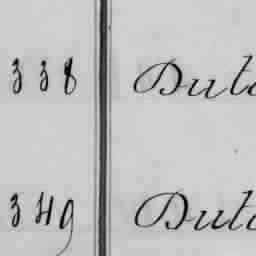 338 Dut
349 Dut